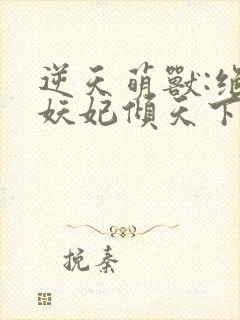 逆天萌獸:絕
妖妃傾天下
挽秦